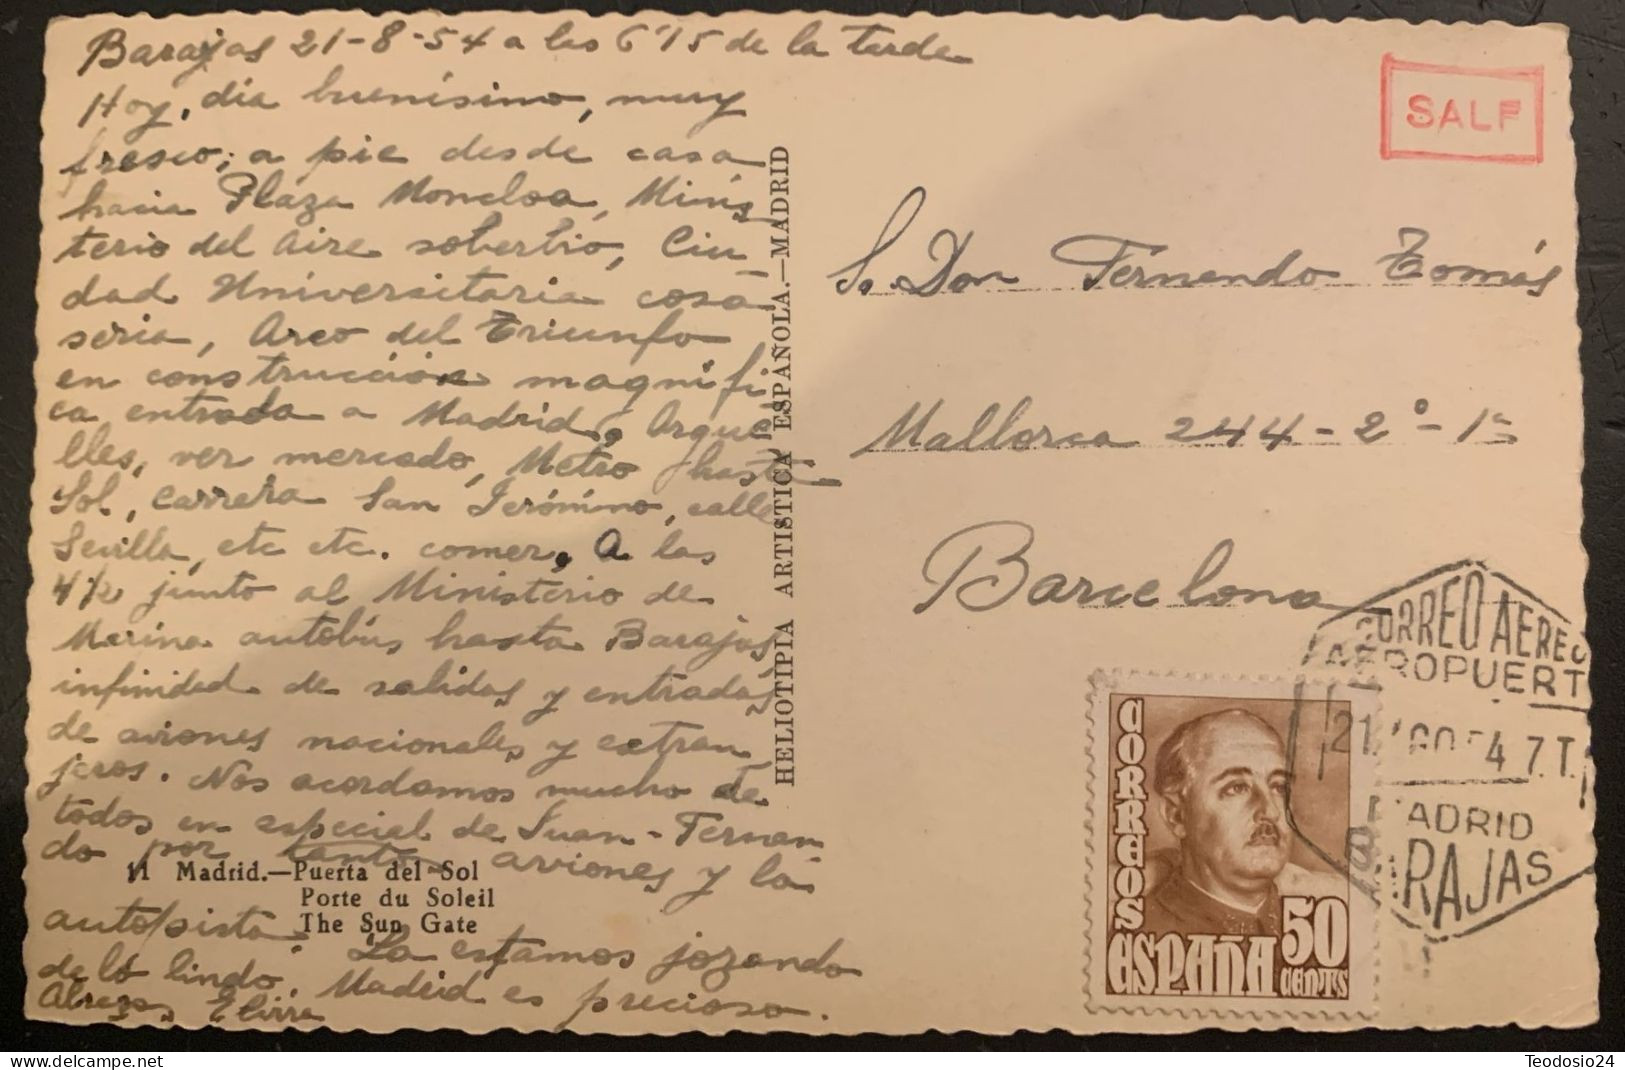 Barajas 21-8-54 a las 6'15 de la tarde
Hoy, día buenísimo, muy
fresco; a pie desde casa
hacia Plaza Moncloa, Minis
terio del Aire soberbio, Ciu-
dad Universitaria cosa
seria, Arco del Triunfo
en construcción magnífi-
ca entrada a Madrid, Argue-
lles, ver mercado, Metro hasta
Sol, Carrera San Jerónimo, calle
Sevilla, etc etc. comer, A las
4½ junto al Ministerio de
Marina autobús hasta Barajas,
infinidad de salidas y entradas
de aviones nacionales y extran
jeros. Nos acordamos mucho de
todos en especial de Juan-Fernan
do por tanto aviones y la
autopista. La estamos jozando
de lo lindo. Madrid es precioso.
Abrazos, Elvira
11 Madrid.—Puerta del Sol
Porte du Soleil
The Sun Gate
HELIOTIPIA ARTISTICA ESPAÑOLA.—MADRID
SALF
Sr. Don Fernando Tomás
Mallorca 244-2º-1ª
Barcelona
CORREOS
ESPAÑA
50
CENTS
CORREO AEREO
AEROPUERT
21 AGO 54 7.T.
MADRID
BARAJAS
Teodosio24